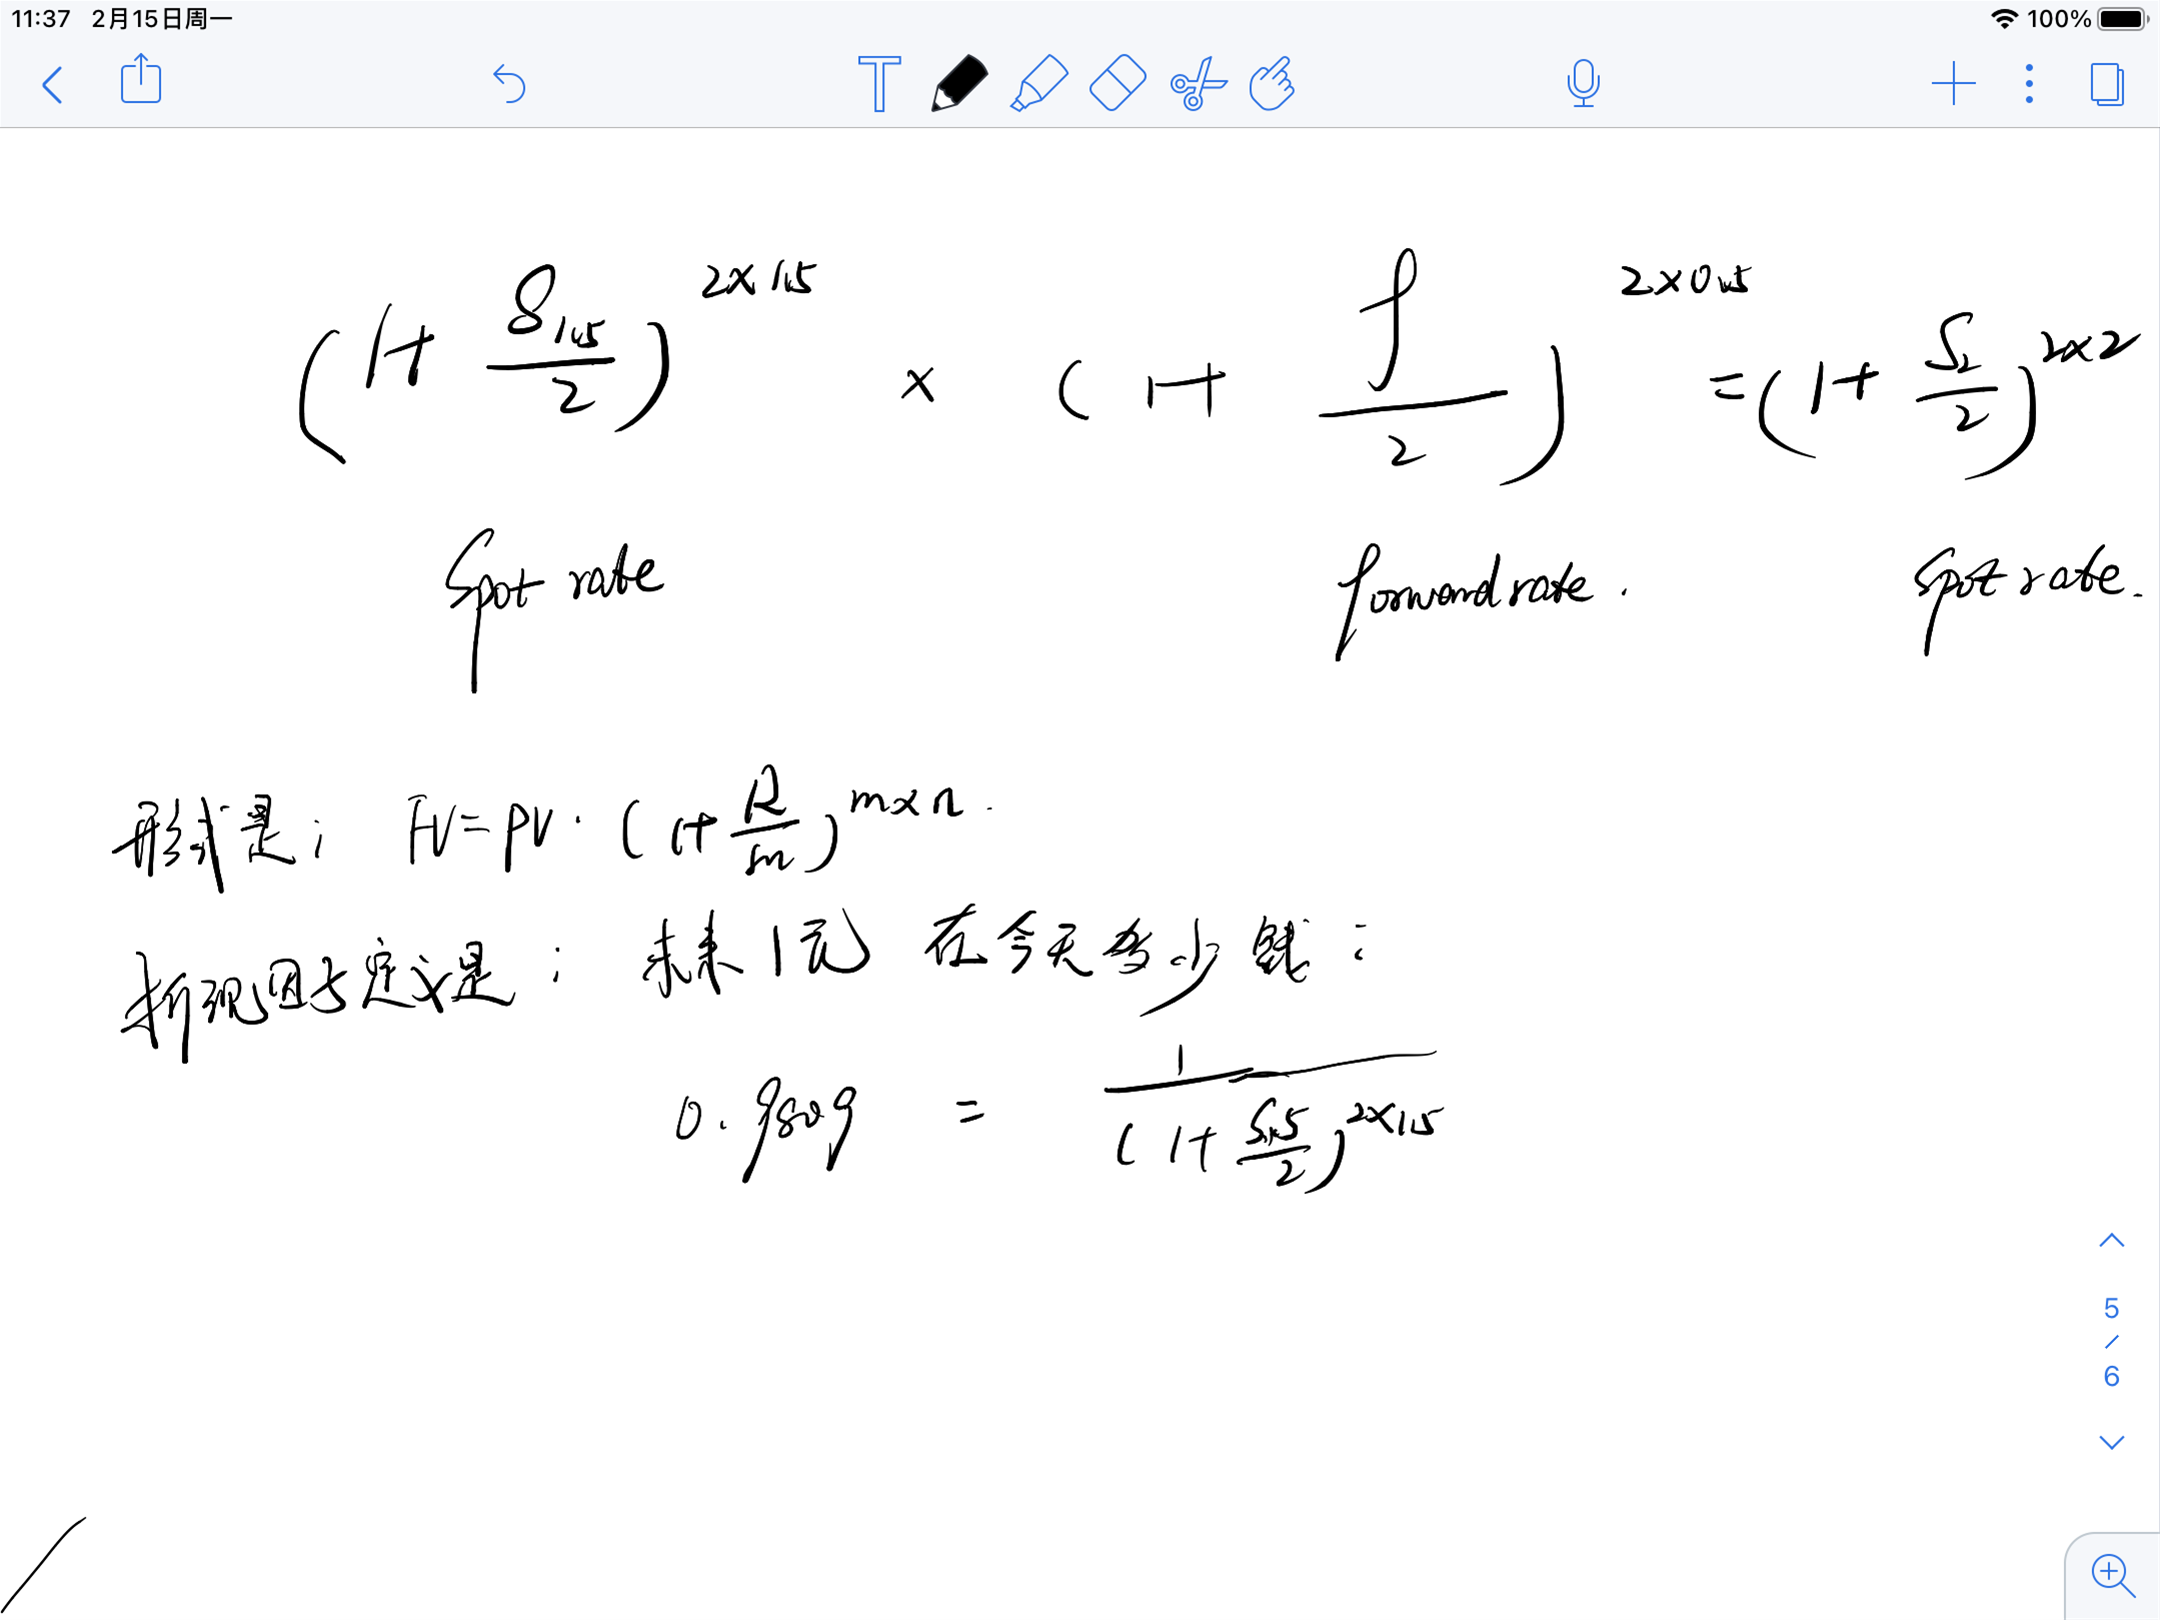 11:37 2月15日周一 100%
T
(1+ S1.5/2)^2×1.5 × (1+ f/2)^2×0.5 =(1+ S2/2)^2×2
Spot rate forward rate. Spot rate.
形式是: FV=PV·(1+ R/m)^m×n.
折现因子定义是: 未来1元 在今天多少钱:
0.9809 = 1/(1+ S1.5/2)^2×1.5
5
/
6